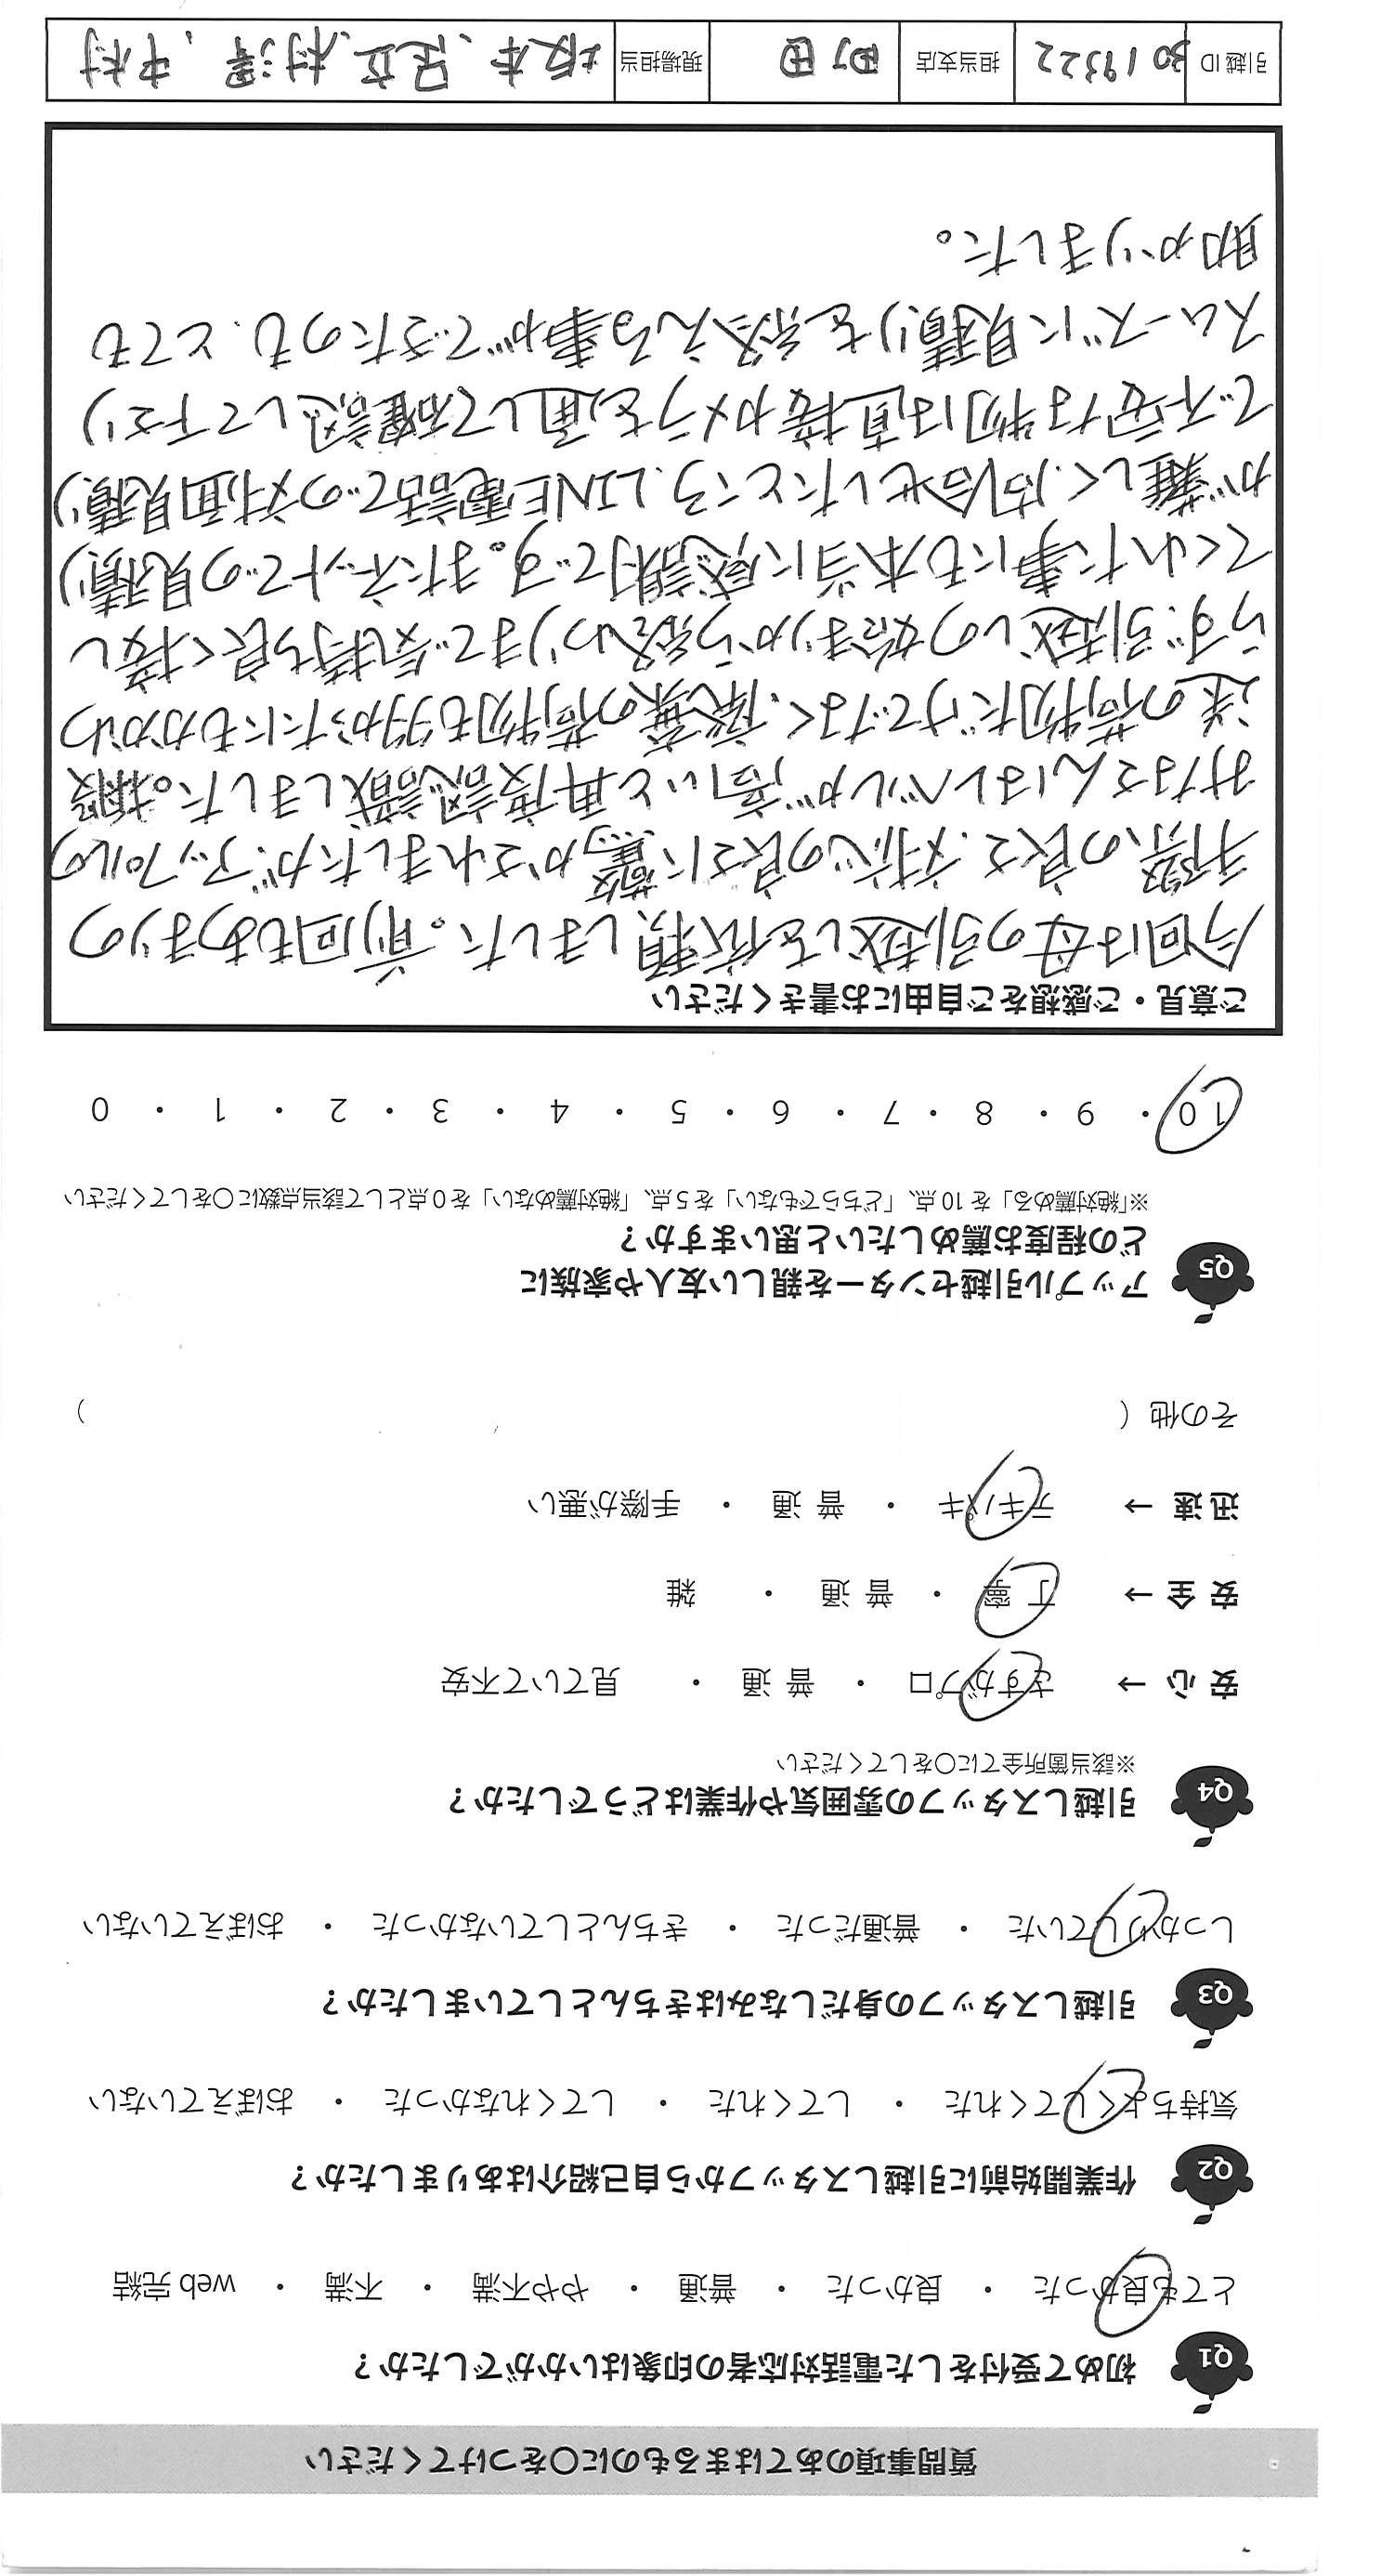 質問事項のあてはまるものに○をつけてください
Q1 初めて受付をした電話対応者の印象はいかがでしたか？
とても良かった ・ 良かった ・ 普通 ・ やや不満 ・ 不満 ・ web 完結
Q2 作業開始前に引越しスタッフから自己紹介はありましたか？
気持ちよくしてくれた ・ してくれた ・ してくれなかった ・ おぼえていない
Q3 引越しスタッフの身だしなみはきちんとしていましたか？
しっかりしていた ・ 普通だった ・ きちんとしていなかった ・ おぼえていない
Q4 引越しスタッフの雰囲気や作業はどうでしたか？
※該当箇所全てに○をしてください
安 心 → さすがプロ ・ 普 通 ・ 見ていて不安
安 全 → 丁 寧 ・ 普 通 ・ 雑
迅 速 → テキパキ ・ 普 通 ・ 手際が悪い
その他（ ）
Q5 アップル引越センターを親しい友人や家族に
どの程度お薦めしたいと思いますか？
※「絶対薦める」を 10 点、「どちらでもない」を 5 点、「絶対薦めない」を 0 点として該当点数に○をしてください
10 ・ 9 ・ 8 ・ 7 ・ 6 ・ 5 ・ 4 ・ 3 ・ 2 ・ 1 ・ 0
ご意見・ご感想をご自由にお書きください
今回は母の引越しを依頼しました。前回もあまりの
手際の良さ、対応の良さに驚かされましたが、アップルの
みなさんはレベルが高いと再度認識しました。搬
送の荷物だけでなく、廃棄の荷物も多かったにもかかわ
らず、引越しの始まりから終わりまで気持ち良く接し
てくれた事にも本当に感謝です。またネットでの見積り
が難しく、問合せしたところ、LINE電話での対面見積り
で不安な物は直接カメラを通して確認して下さり
スムーズに見積りを終える事ができたのも、とても
助かりました。
引越 ID 3019322 担当支店 町田 現場担当 坂本、足立、村澤、中村